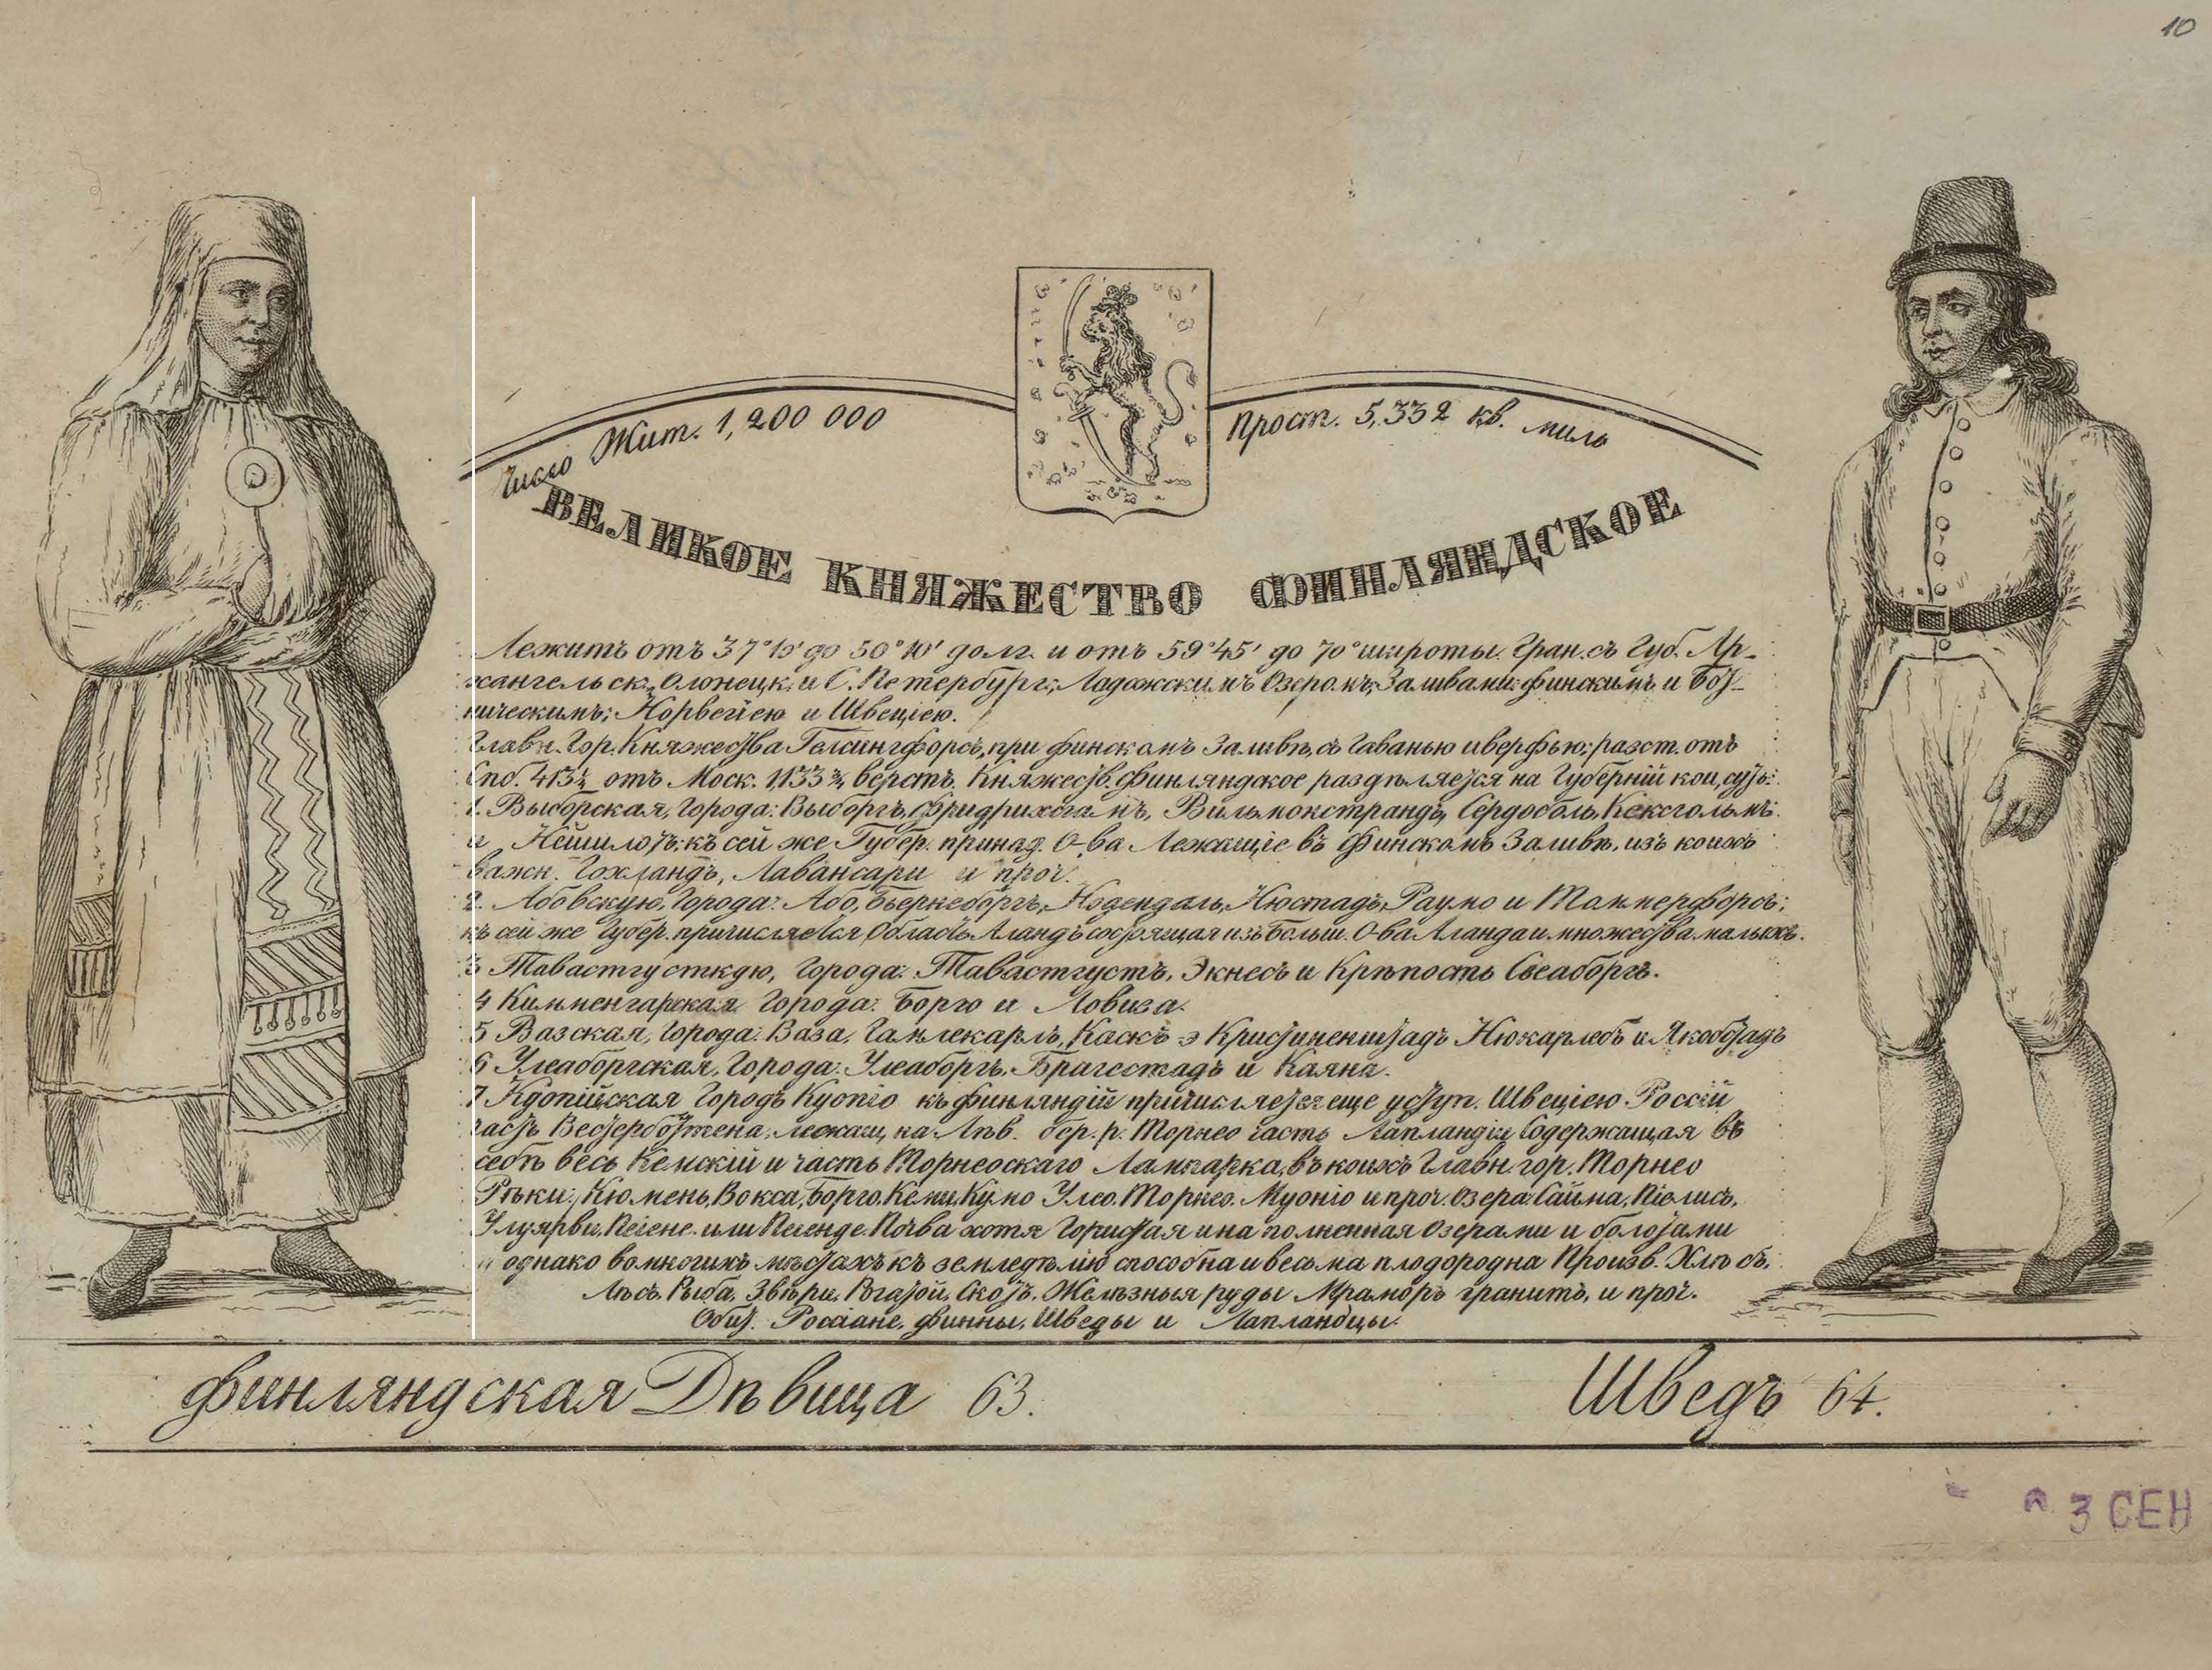 10
Число Жит. 1,200 000
Прост. 5,332 кв. миль
ВЕЛИКОЕ КНЯЖЕСТВО ФИНЛЯНДСКОЕ
Лежитъ отъ 37° до 50°10' долг. и отъ 59°45' до 70° широты. Гран. съ Губ. Ар-
хангельск. Олонецк. и С. Петербург., Ладожскимъ Озеромъ, Заливами: Финскимъ и Бот-
ническимъ; Норвегіею и Швеціею.
Главн. Гор. Княжества Гельсингфорсъ, при Финскомъ Заливѣ, съ Гаванью и верфью; разст. отъ
Спб. отъ Моск. верстъ. Княжеств. Финляндское раздѣляется на Губерній кои, суть:
1. Выборская, Города: Выборгъ, Фридрихсгамъ, Вильмонстрандъ, Сердоболь, Кексгольмъ
и Нейшлотъ; къ сей же Губер. принад. О-ва Лежащіе въ Финскомъ Заливѣ, изъ коихъ
важн. Гохландъ, Лавансари и проч.
2. Абовскую, Города: Або, Бьернеборгъ, Нодендаль, Нюстадъ, Раумо и Таммерфорсъ;
къ сей же Губер. причисляется Область Аландъ состоящая изъ Больш. О-ва Аланда и множества малыхъ.
3 Тавастгусткдю, Города: Тавастгустъ, Экнесъ и Крѣпость Свеаборгъ.
4 Кимменгарская Города: Борго и Ловиза.
5 Вазская, Города: Ваза, Гамлекарль, Каскъ-э Кристиненштадъ Нюкарлебъ и Якобстадъ
6 Улеаборгская, Города: Улеаборгъ, Брагестадъ и Каяна.
7 Кдопійская Городъ Куопіо къ Финляндій причисляется еще уступ. Швеціею Россіи
часть Вестерботтена, лежащ. на Лѣв. бер. р. Торнео часть Лапландіи Содержащая въ
себѣ весь Кемскій и часть Торнеоскаго Лампарка, въ коихъ Главн. гор. Торнео
Рѣки: Кюмень, Вокса, Борго, Кеми, Кумо Улео, Торнео, Муоніо и проч. Озера: Сайма, Піелисъ,
Улуярви, Пеіене или Пеіенде. Почва хотя Гористая и на полненная Озерами и болотами
однако во многихъ мѣстахъ къ земледѣлію способна и весьма плодородна Произв. Хлѣбъ,
Лѣсъ, Рыба, Звѣри, Рогатой, Скотъ, Желѣзныя руды Мраморъ гранитъ, и проч.
Обит. Россіане, Финны, Шведы и Лапландцы.
Финляндская Дѣвица 63.
Шведъ 64.
3 СЕН